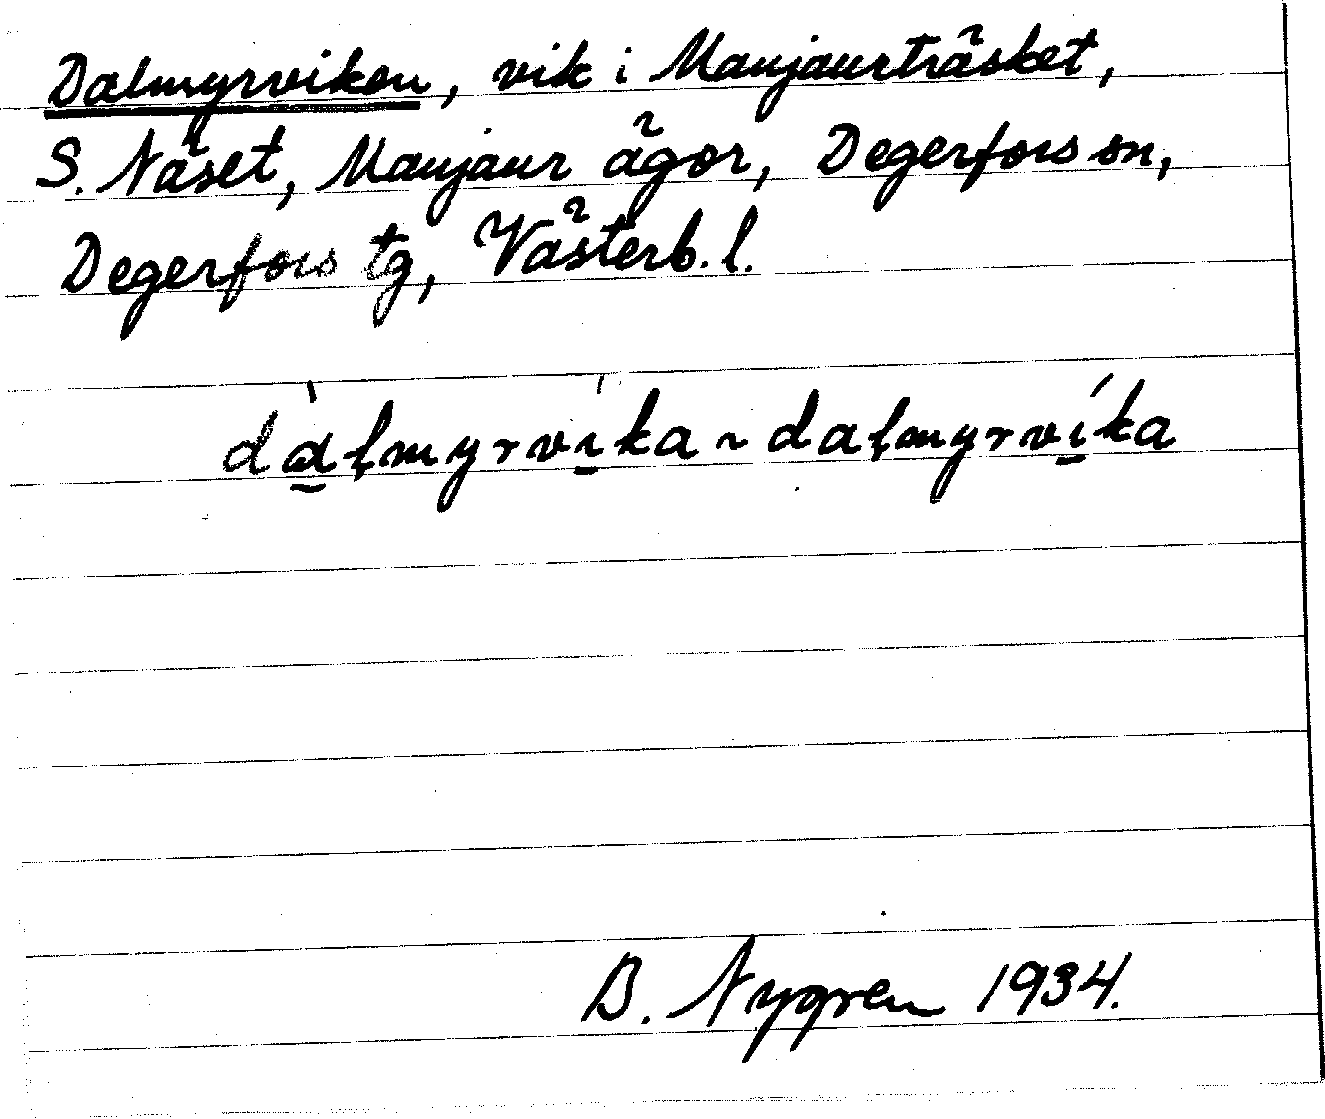 Dalmyrviken, vik i Maujaurträsket,
S. Näset, Maujaur ägor, Degerfors sn,
Degerfors tg, Västerb. l.
dàḷmyrvíka ~ daḷmyrvíka
B. Nygren 1934.